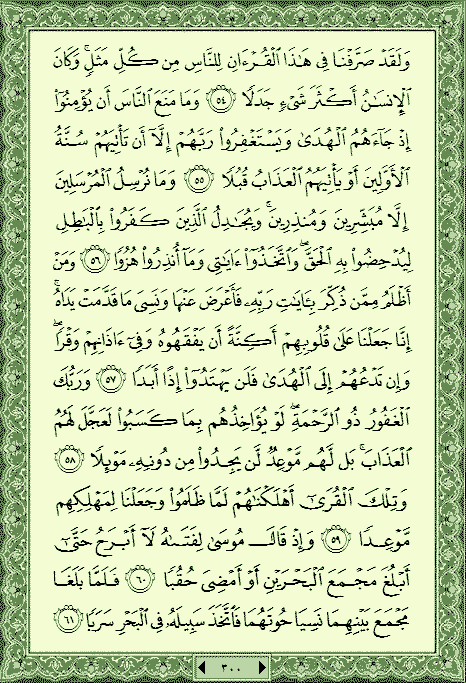 وَلَقَدْ صَرَّفْنَا فِى هَٰذَا ٱلْقُرْءَانِ لِلنَّاسِ مِن كُلِّ مَثَلٍۚ وَكَانَ
ٱلْإِنسَٰنُ أَكْثَرَ شَىْءٍ جَدَلًا ٥٤ وَمَا مَنَعَ ٱلنَّاسَ أَن يُؤْمِنُوٓا۟
إِذْ جَآءَهُمُ ٱلْهُدَىٰ وَيَسْتَغْفِرُوا۟ رَبَّهُمْ إِلَّآ أَن تَأْتِيَهُمْ سُنَّةُ
ٱلْأَوَّلِينَ أَوْ يَأْتِيَهُمُ ٱلْعَذَابُ قُبُلًا ٥٥ وَمَا نُرْسِلُ ٱلْمُرْسَلِينَ
إِلَّا مُبَشِّرِينَ وَمُنذِرِينَۚ وَيُجَٰدِلُ ٱلَّذِينَ كَفَرُوا۟ بِٱلْبَٰطِلِ
لِيُدْحِضُوا۟ بِهِ ٱلْحَقَّۖ وَٱتَّخَذُوٓا۟ ءَايَٰتِى وَمَآ أُنذِرُوا۟ هُزُوًا ٥٦ وَمَنْ
أَظْلَمُ مِمَّن ذُكِّرَ بِـَٔايَٰتِ رَبِّهِۦ فَأَعْرَضَ عَنْهَا وَنَسِىَ مَا قَدَّمَتْ يَدَاهُۚ
إِنَّا جَعَلْنَا عَلَىٰ قُلُوبِهِمْ أَكِنَّةً أَن يَفْقَهُوهُ وَفِىٓ ءَاذَانِهِمْ وَقْرًاۖ
وَإِن تَدْعُهُمْ إِلَى ٱلْهُدَىٰ فَلَن يَهْتَدُوٓا۟ إِذًا أَبَدًا ٥٧ وَرَبُّكَ
ٱلْغَفُورُ ذُو ٱلرَّحْمَةِۖ لَوْ يُؤَاخِذُهُم بِمَا كَسَبُوا۟ لَعَجَّلَ لَهُمُ
ٱلْعَذَابَۚ بَل لَّهُم مَّوْعِدٌ لَّن يَجِدُوا۟ مِن دُونِهِۦ مَوْئِلًا ٥٨
وَتِلْكَ ٱلْقُرَىٰٓ أَهْلَكْنَٰهُمْ لَمَّا ظَلَمُوا۟ وَجَعَلْنَا لِمَهْلِكِهِم
مَّوْعِدًا ٥٩ وَإِذْ قَالَ مُوسَىٰ لِفَتَىٰهُ لَآ أَبْرَحُ حَتَّىٰٓ
أَبْلُغَ مَجْمَعَ ٱلْبَحْرَيْنِ أَوْ أَمْضِىَ حُقُبًا ٦٠ فَلَمَّا بَلَغَا
مَجْمَعَ بَيْنِهِمَا نَسِيَا حُوتَهُمَا فَٱتَّخَذَ سَبِيلَهُۥ فِى ٱلْبَحْرِ سَرَبًا ٦١
٣٠٠